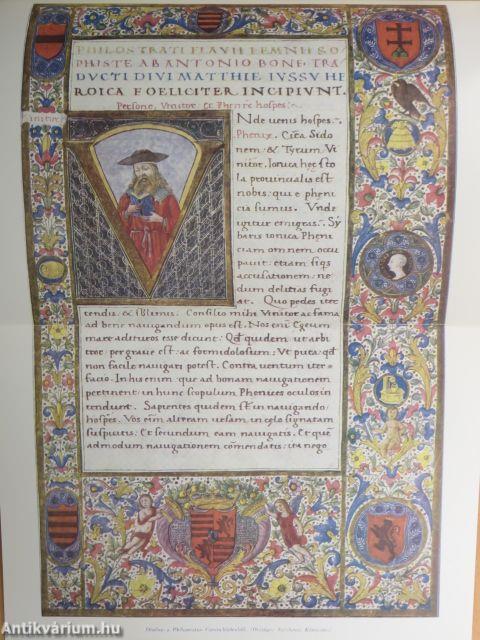 PHILOSTRATI FLAVII LEMNII SO
PHISTE AB ANTONIO BONF. TRA
DUCTI DIVI MATTHIE IUSSU HE
ROICA FOELICITER INCIPIUNT.
Persone, Vinitor, & Phenix hospes:
Vinitor
Nde venis hospes.
Phenix. Circa Sido
nem & Tyrum. Vi
nitor. Ionica hec sto
la provincialis est
nobis: qui e pheni
cia sumus. Unde
igitur emigrast. Sy
baris ionica Pheni
ciam omnem occu
pavit: etiam siqs
accusationem: ne
dum delitias fugi
at. Quo pedes iter
tendis & Blimus: Consilio mihi Vinitor ac fama
ad bene navigandum opus est. Nos eni Egeum
mare adituros esse dicunt: Qd quidem ut arbi
tror per grave est: ac formidolosum: Ut puta: qd
non facile navigari potest. Contra ventum iter
facio. In his enim que ad bonam navigationem
pertinent in hunc scopulum Phenices oculos in
tendunt. Sapientes quidem st in navigando
hospes. Vos eim alteram ursam in celo signatam
suspicitis: Et secundum eam navigatis. Et que
admodum navigationem comendatis: ita nego
Antikvárium.hu